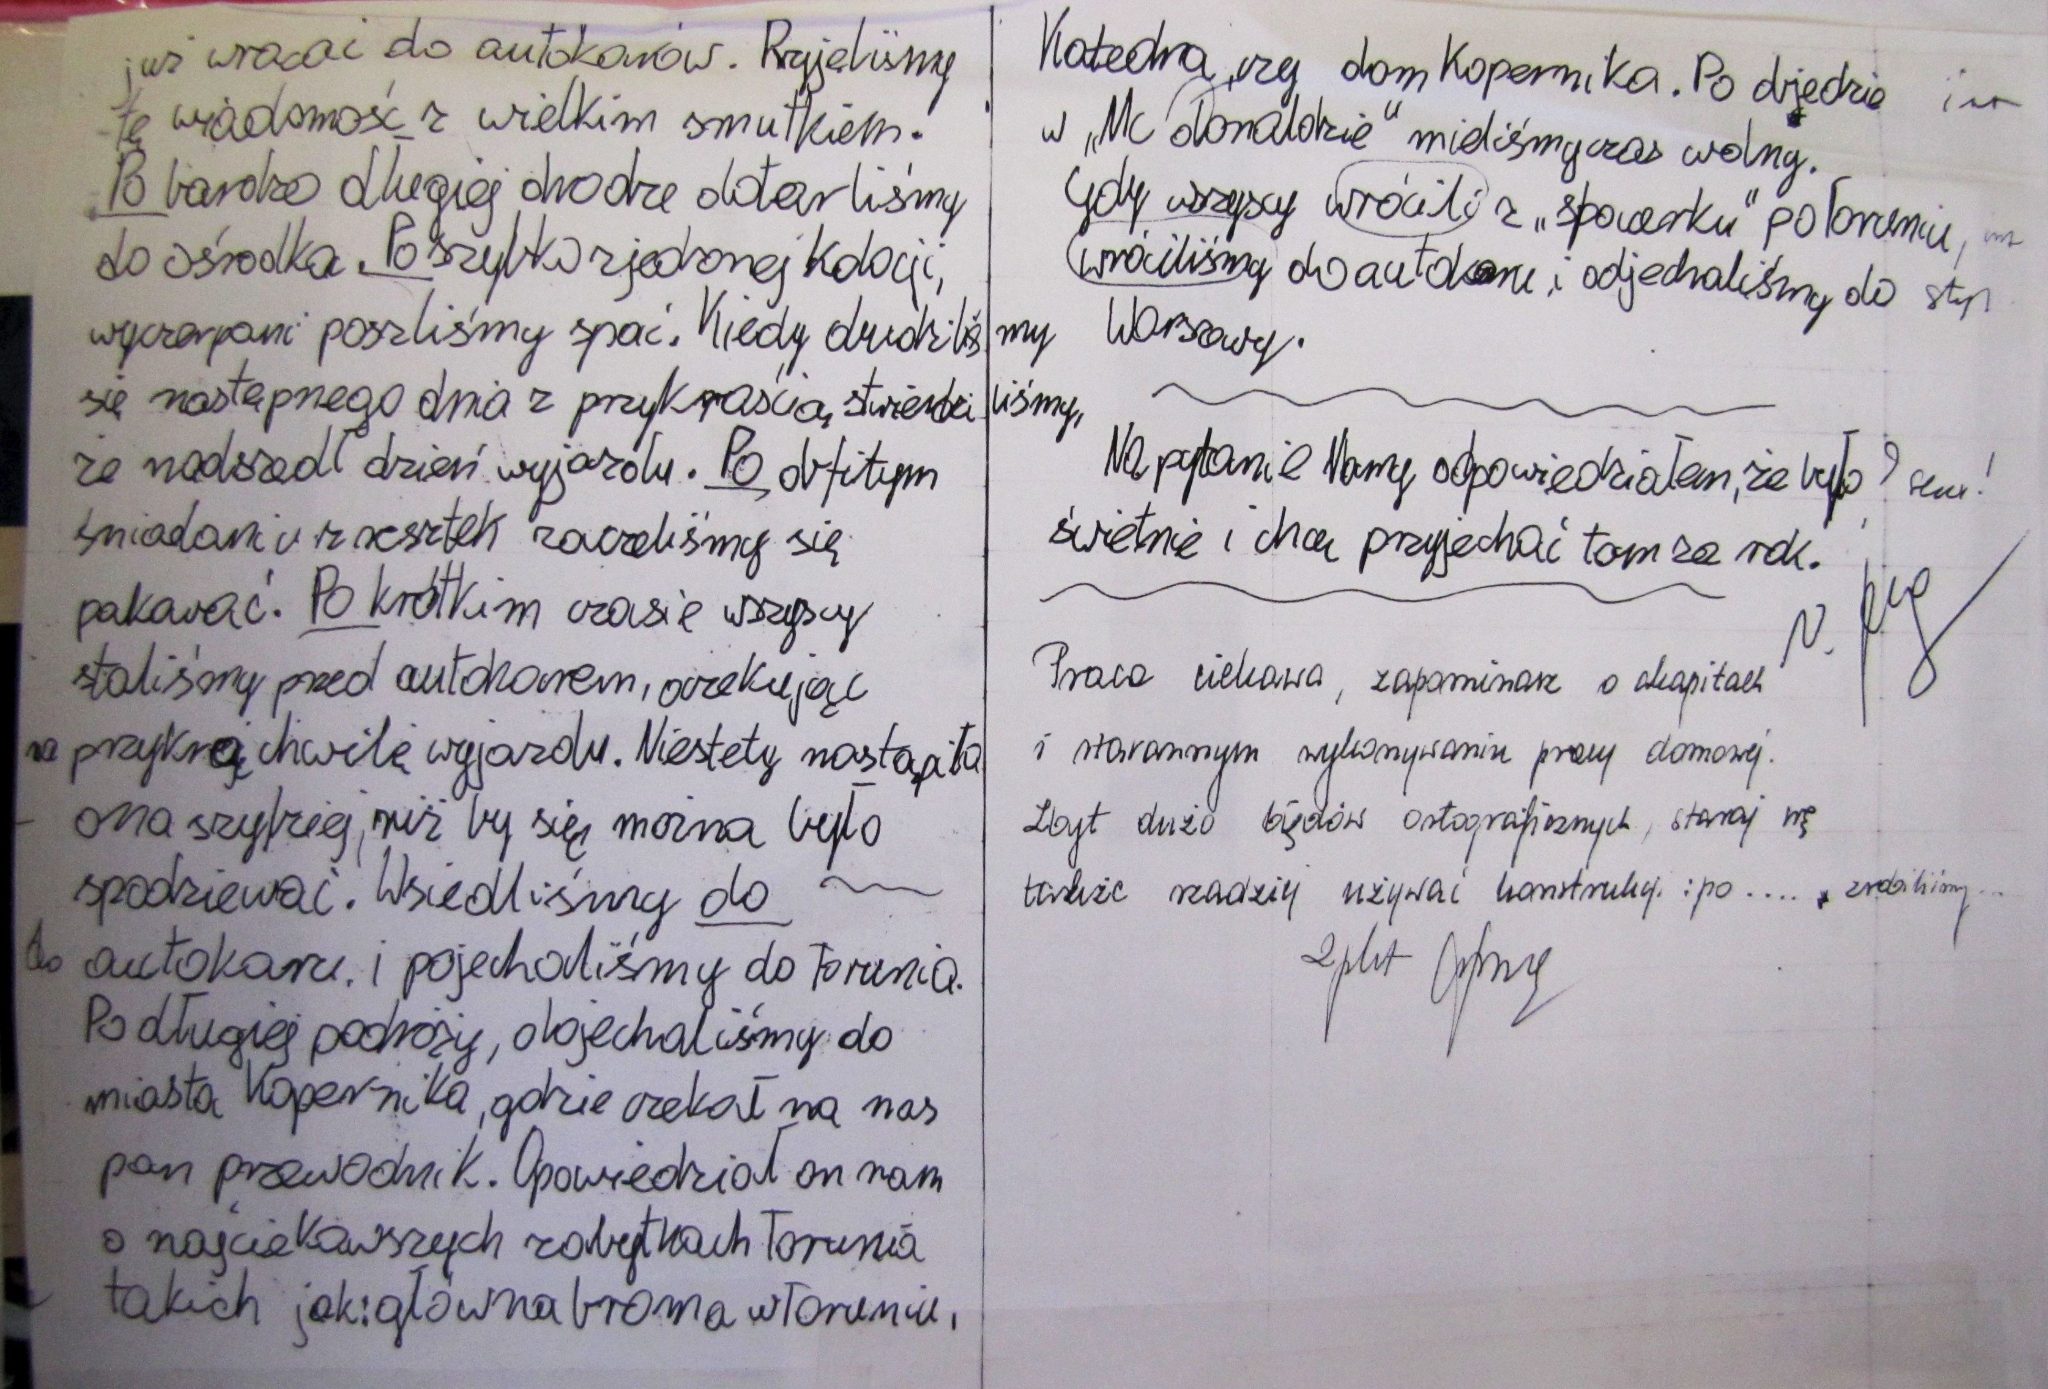 już wracać do autokarów. Przyjeliśmy
tę wiadomość z wielkim smutkiem.
Po bardzo długiej drodze dotarliśmy
do ośrodka. Po szybko zjedzonej kolacji,
wyczerpani poszliśmy spać. Kiedy obudziliśmy
się następnego dnia z przykrością stwierdziliśmy,
że nadszedł dzień wyjazdu. Po obfitym
śniadaniu z resztek zaczeliśmy się
pakować. Po krótkim czasie wszyscy
staliśmy przed autokarem, oczekując
na przykrą chwilę wyjazdu. Niestety nastąpiła
ona szybciej, niż by się można było
spodziewać. Wsiedliśmy do
do autokaru. i pojechaliśmy do Torunia.
Po długiej podróży, dojechaliśmy do
miasta Kopernika, gdzie czekał na nas
pan przewodnik. Opowiedział on nam
o najciekawszych zabytkach Torunia
takich jak: główna brama w Toruniu,
Katedra, czy dom Kopernika. Po objedzie
w „Mc donaldzie" mieliśmy czas wolny.
Gdy wszyscy wrócili z „spacerku" po Toruniu,
wróciliśmy do autokaru i odjechaliśmy do styl
Warszawy.
Na pytanie Mamy odpowiedziałem, że było ? sens!
świetnie i chcę przyjechać tam za rok.
Praca ciekawa, zapominasz o akapitach
i starannym wykonywaniu pracy domowej.
Zbyt dużo błędów ortograficznych, staraj się
także rzadziej używać konstrukcji: po .... zrobiliśmy...